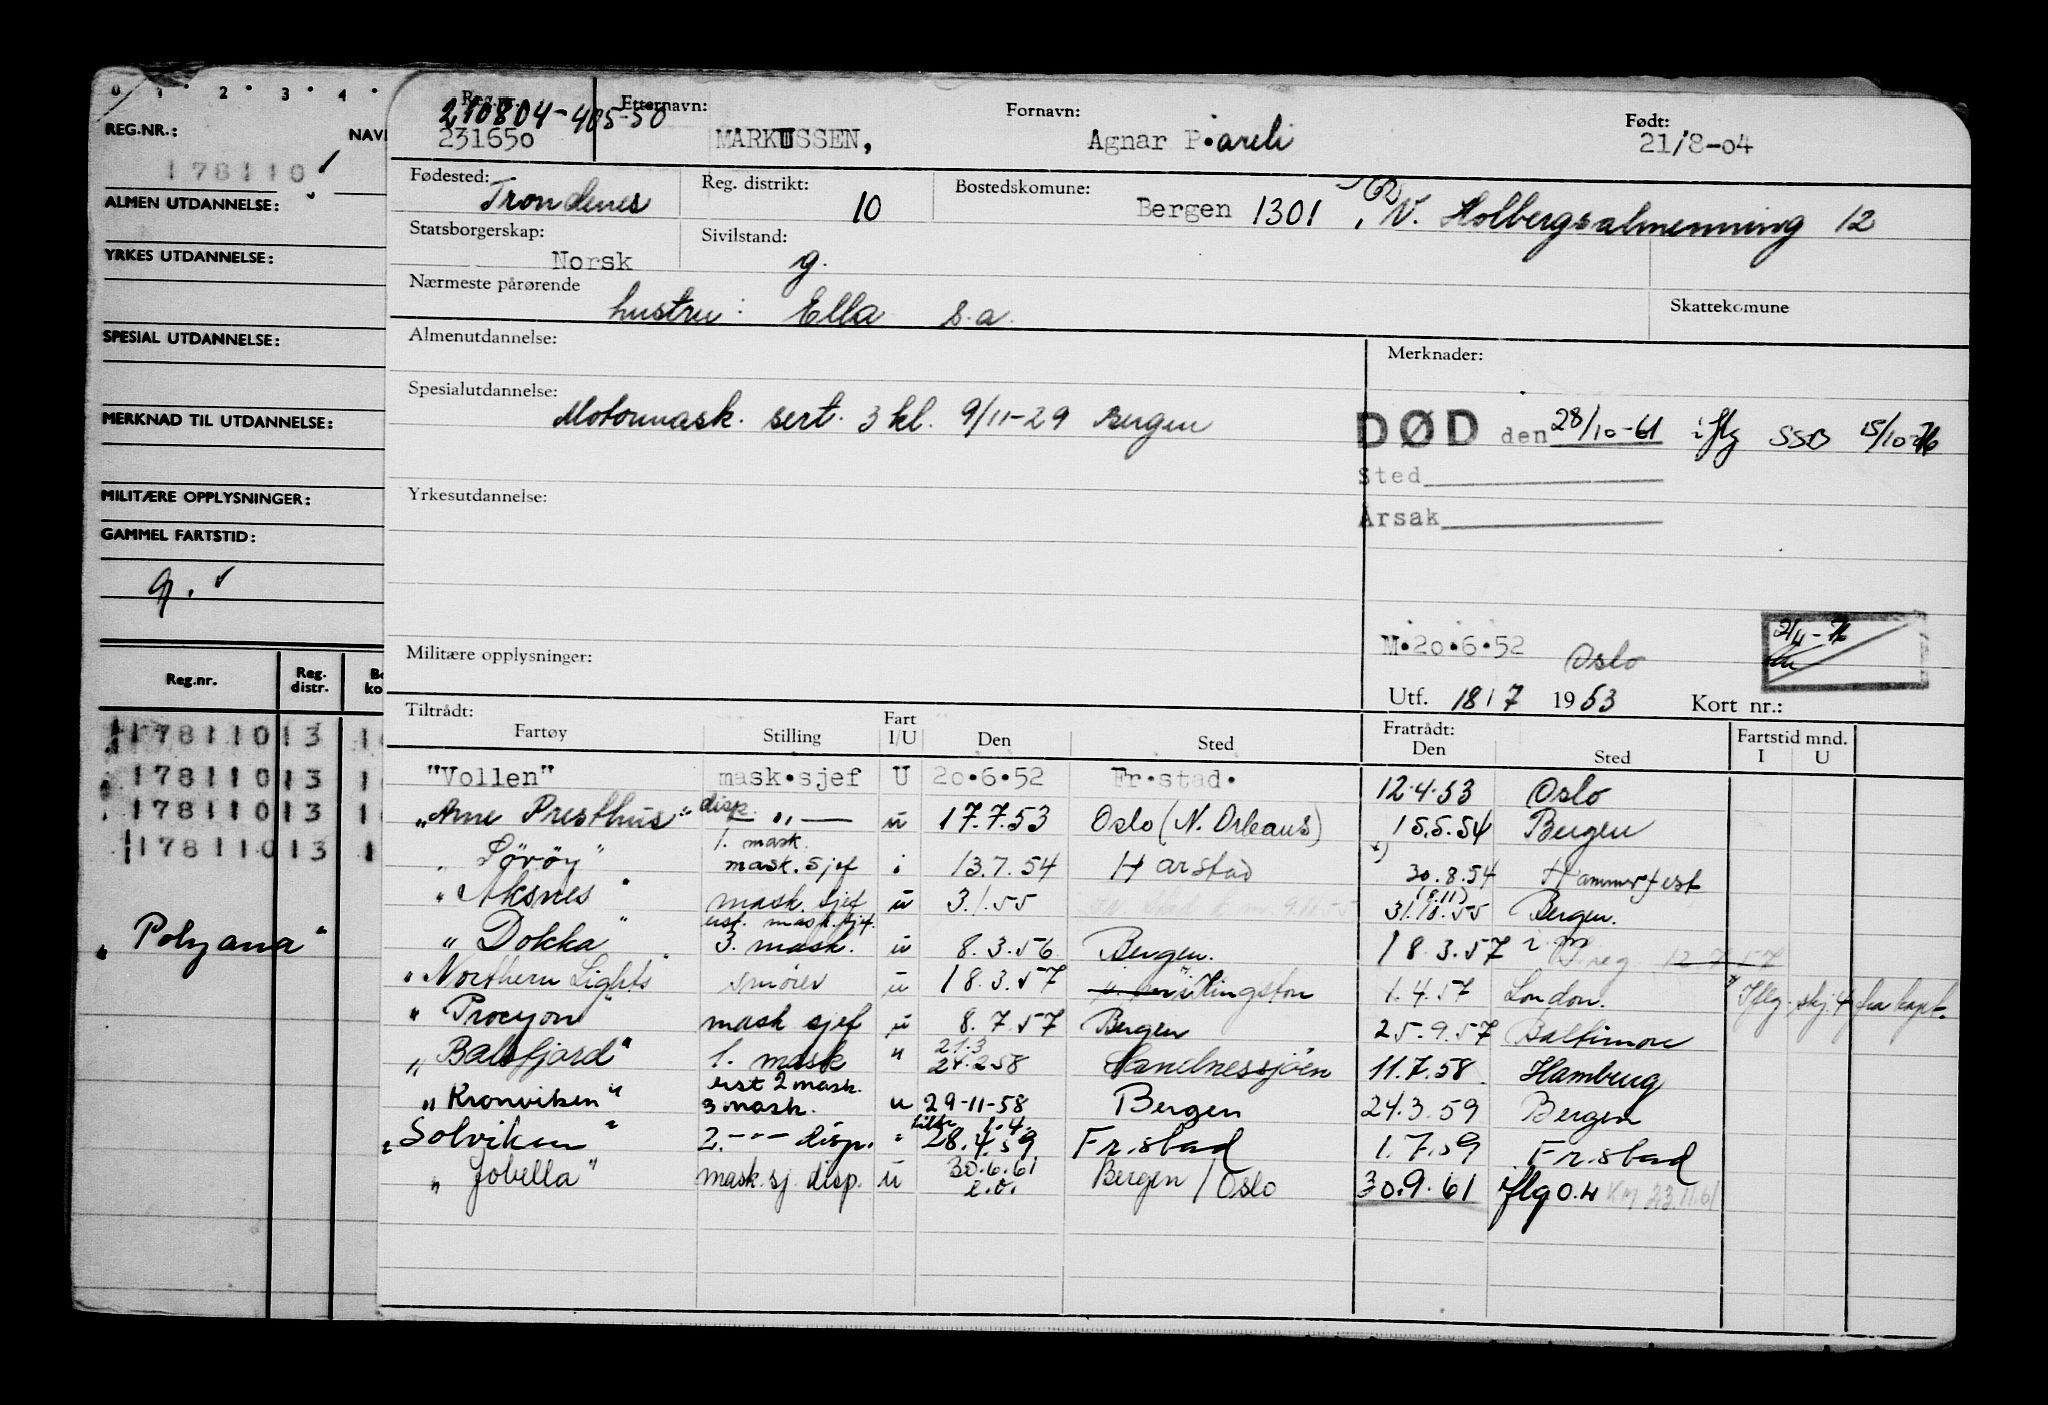 0 1 2 3 4
REG.NR.: NAVN
178110
ALMEN UTDANNELSE:
YRKES UTDANNELSE:
SPESIAL UTDANNELSE:
MERKNAD TIL UTDANNELSE:
MILITÆRE OPPLYSNINGER:
GAMMEL FARTSTID:
g.
Reg.nr. Reg. distr.
178110 13
178110 13
178110 13
178110 13
"Polyana"
Reg.nr. Etternavn: Fornavn: Født:
210804-405-50
231650 MARKUSSEN, Agnar P.areli 21/8-04
Fødested: Reg. distrikt: Bostedskomune:
Trondenes 10 Bergen 1301, N. Holbergsalmenning 12
Statsborgerskap: Sivilstand:
Norsk g.
Nærmeste pårørende Skattekomune
hustru: Ella s.a.
Almenutdannelse: Merknader:
Spesialutdannelse:
Motormask. sert. 3 kl. 9/11-29 Bergen
DØD den 28/10-61 iflg SSB 15/10-76
Sted
Årsak
Yrkesutdannelse:
Militære opplysninger:
M.20.6.52 Oslo 21/4-76
Utf. 18/7 1953 Kort nr.:
Tiltrådt: Fratrådt: Fartstid mnd.
Fartøy Stilling Fart I/U Den Sted Den Sted I U
"Vollen" mask.sjef U 20.6.52 Fr.stad. 12.4.53 Oslo
"Arne Presthus" disp. — " — u 17.7.53 Oslo (N. Orleans) 15.5.54 Bergen
"Söröy" 1. mask. mask. sjef i 13.7.54 Harstad x) 30.8.54 Hammerfest
"Aksnes" mask. sjef u 3.1.55 31.10.55 (9.11) Bergen.
"Dokka" 3. mask. u 8.3.56 Bergen. 18.3.57 i.m
"Northern Lights" smører u 18.3.57 Kingston 1.4.57 London. x Iflg. skj. 4 fra kapt.
"Procyon" mask sjef u 8.7.57 Bergen 25.9.57 Baltimore
"Balsfjord" 1. mask " 21.3 24.2.58 Sandnessjöen 11.7.58 Hamburg
"Kronviken" est 2 mask. 3 mask. u 29-11-58 Bergen 24.3.59 Bergen
"Solviken" 2. -"- disp. " 1.4. 28.4.59 Fr.stad 1.7.59 Fr.stad
"Jobella" mask.sj. disp. u 30.6.61 e.o. Bergen/Oslo 30.9.61 iflg O.H Km 23.11.61